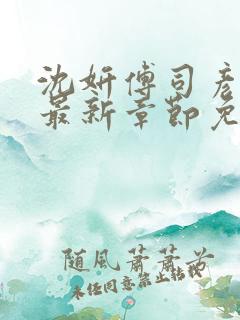 沈妍傅司彦
最新章節免
随風蕭蕭兮
未经同意禁止转载